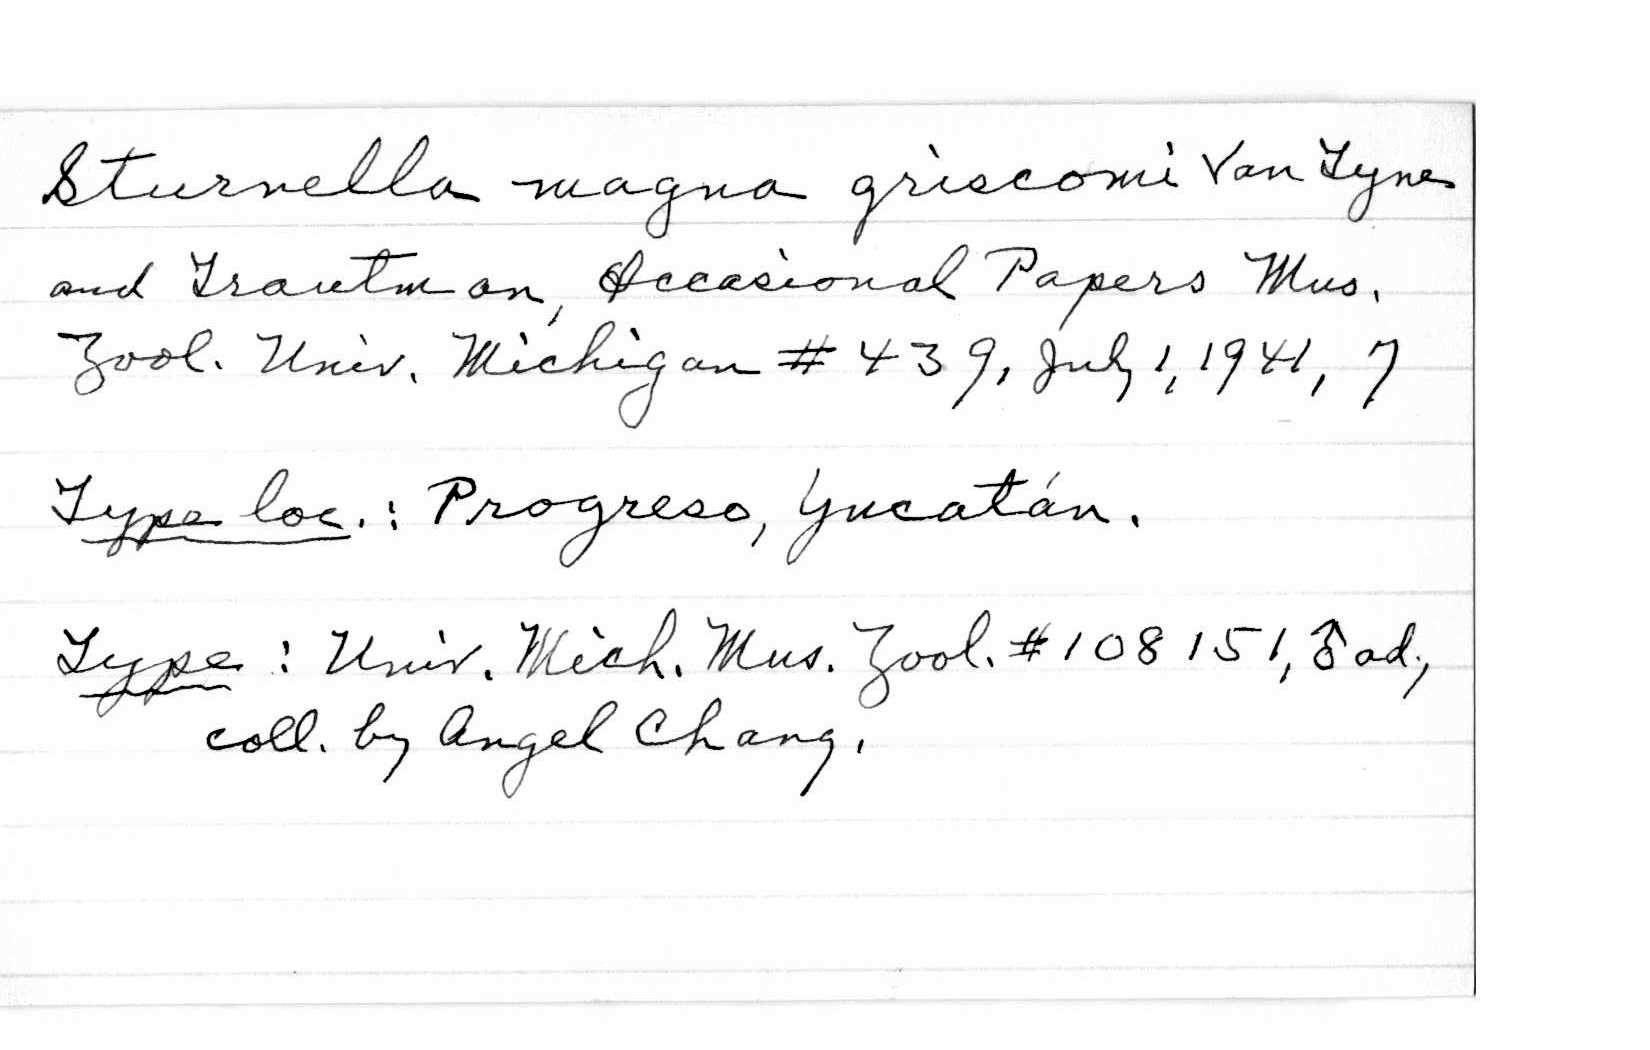 Sturnella magna griscomi Van Tyne
and Trautman, Occasional Papers Mus.
Zool. Univ. Michigan # 439, July 1, 1941, 7
Type loc.: Progreso, Yucatán.
Type: Univ. Mich. Mus. Zool. #108151, ♂ ad.,
coll. by Angel Chang.